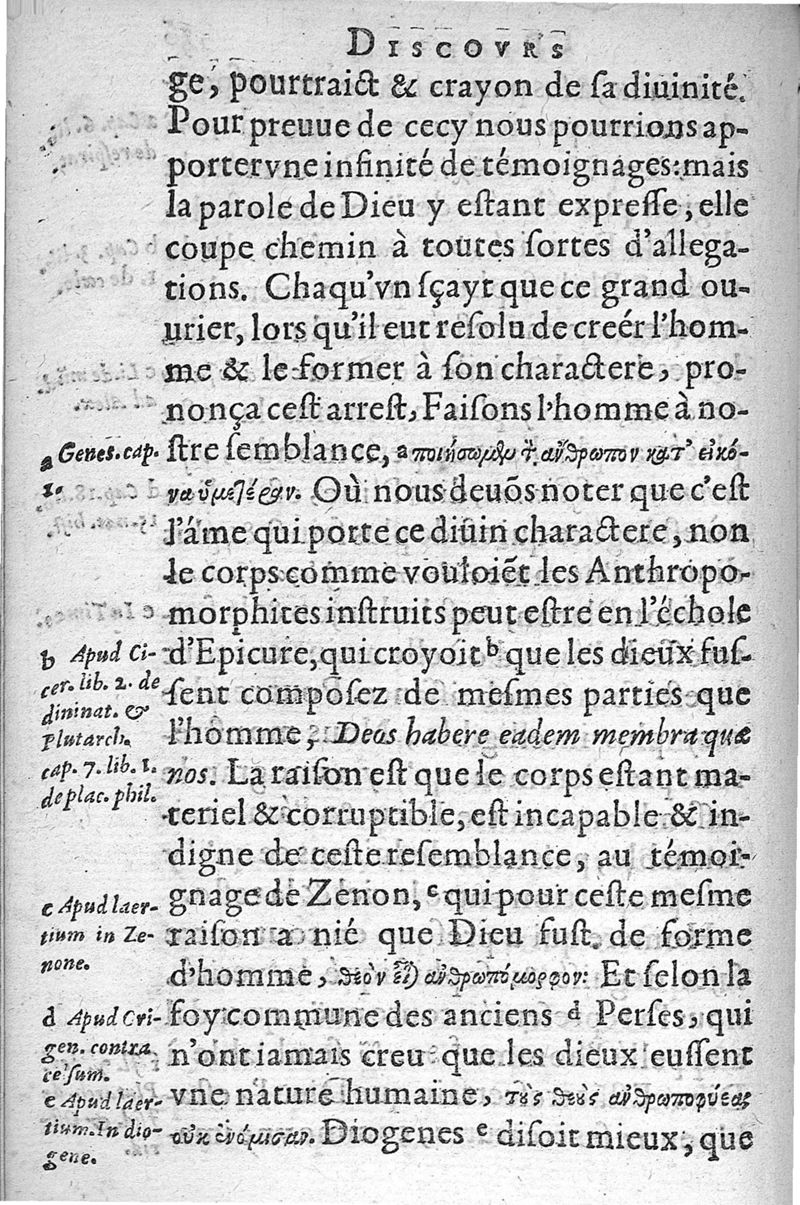 DISCOVRS
ge, pourtraict & crayon de sa diuinité.
Pour preuue de cecy nous pourrions ap-
porter vne infinité de témoignages: mais
la parole de Dieu y estant expresse, elle
coupe chemin à toutes sortes d'allega-
tions. Chaqu'vn sçayt que ce grand ou-
urier, lors qu'il eut resolu de creér l'hom-
me & le former à son charactere, pro-
nonça cest arrest, Faisons l'homme à no-
stre semblance, a ποιήσωμεν τ̃ ἄνθρωπον κατ' εἰκό-
να ὑμετέραν. Où nous deuõs noter que c'est
l'âme qui porte ce diuin charactere, non
le corps comme vouloiẽt les Anthropo-
morphites instruits peut estre en l'échole
d'Epicure, qui croyoit b que les dieux fus-
sent composez de mesmes parties que
l'homme, Deos habere eadem membra quæ
nos. La raison est que le corps estant ma-
teriel & corruptible, est incapable & in-
digne de ceste resemblance, au témoi-
gnage de Zenon, c qui pour ceste mesme
raison a nié que Dieu fust de forme
d'homme, θεὸν εἶ) ἀνθρωπόμορφον: Et selon la
foy commune des anciens d Perses, qui
n'ont iamais creu que les dieux eussent
vne nature humaine, τοὺς θεοὺς ἀνθρωποφύεας
οὐκ ἐνόμισαν. Diogenes e disoit mieux, que
a Genes. cap.
1.
b Apud Ci-
cer. lib. 2. de
dininat. &
Plutarch.
cap. 7. lib. 1.
de plac. phil.
c Apud laer-
tium in Ze-
none.
d Apud Cri-
gen. contra
celsum.
e Apud laer-
tium. In dio-
gene.